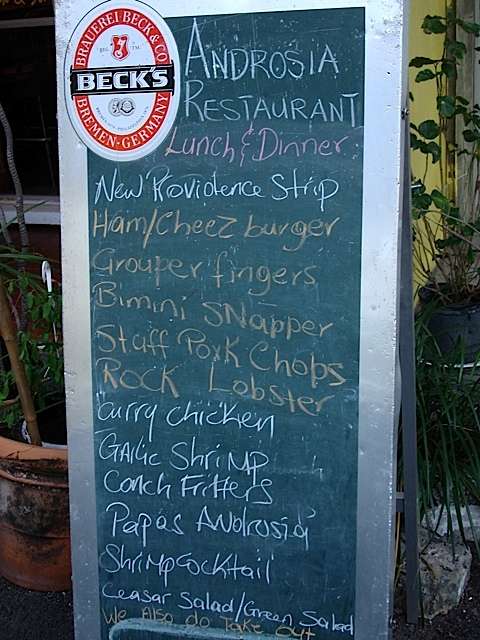 BRAUEREI BECK & CO
BECK'S
BREMEN-GERMANY
ANDROSIA
RESTAURANT
Lunch & Dinner
New Providence Strip
Ham/Cheez burger
Grouper fingers
Bimini SNapper
Staff Pork Chops
ROCK Lobster
Curry chicken
GArlic ShriMP
Conch Fritters
Papas Androsia
ShriMpCocktail
Ceasar Salad/Green Salad
We Also do Take out